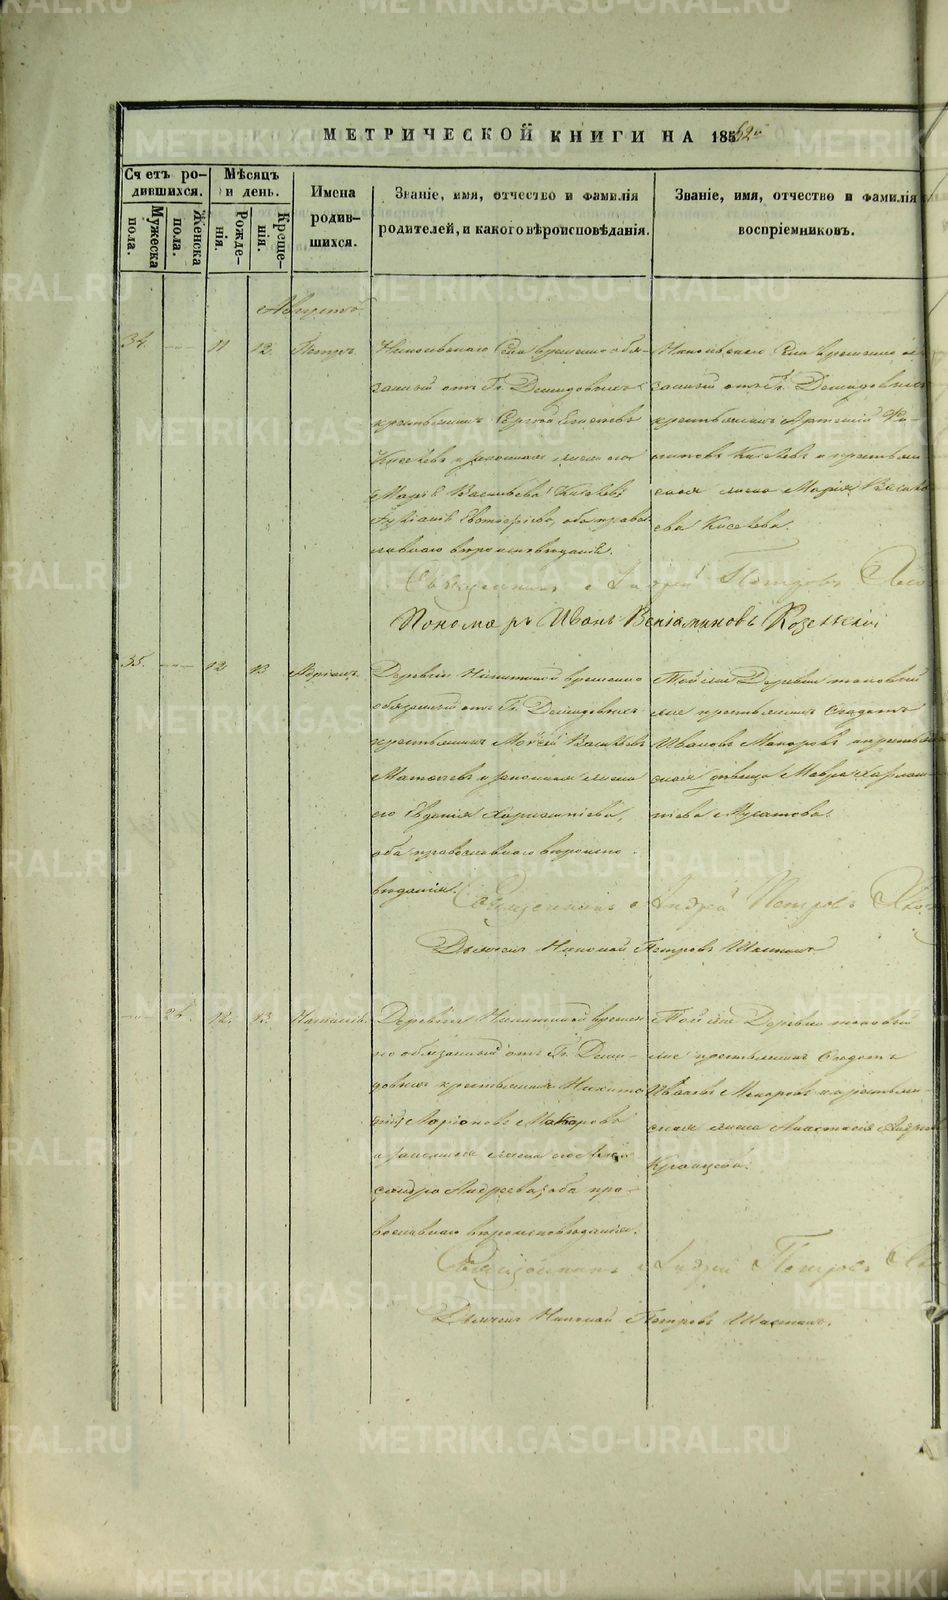 МЕТРИЧЕСКОЙ КНИГИ НА 1852
Счетъ родившихся.
Мужеска пола.
Женска пола.
Мѣсяцъ и день.
Рожденія.
Крещенія.
Имена родившихся.
Званіе, имя, отчество и фамилія родителей, и какого вѣроисповѣданія.
Званіе, имя, отчество и фамилія воспріемниковъ.
Августъ
34. 11 12. Петръ.
Села временно обя-
занный отъ Гг. Демидовыхъ
крестьянинъ Сергѣй
Киселевъ и законная жена его
Марія Васильева
оба право-
славнаго вѣроисповѣданія.
Села временно об
занный отъ Гг. Демидовыхъ
крестьянинъ Артемій
Киселевъ и крестьян
ская жена Марія Василь
ева Киселева.
Священникъ Андрей Петровъ
Пономарь Иванъ Веніаминовъ Козельскій
35. 12 13 Адріанъ.
Деревни временно
обязанный отъ Гг. Демидовыхъ
крестьянинъ Моисей Васильевъ
и законная жена
его Евдокія Харлампіева,
оба православнаго вѣроиспо
вѣданія.
Той же Деревни таковый
же крестьянинъ Ѳедотъ
Ивановъ Макаровъ и крестьян
ская дѣвица Мавра Харлам
піева Мусатова.
Священникъ Андрей Петровъ
Дьячекъ Николай Петровъ
24. 12. 13. Наталія.
Деревни времен
но обязанный отъ Гг. Деми-
довыхъ крестьянинъ Никита
Ларіоновъ Макаровъ
и законная жена его
Андреева, оба пра-
вославнаго вѣроисповѣданія.
Той же Деревни таковый
же крестьянинъ Ѳедотъ
Ивановъ Макаровъ и крестьян-
ская жена Анастасія Андреева
Священникъ Андрей Петровъ
Дьячекъ Николай Петровъ
METRIKI.GASO-URAL.RU